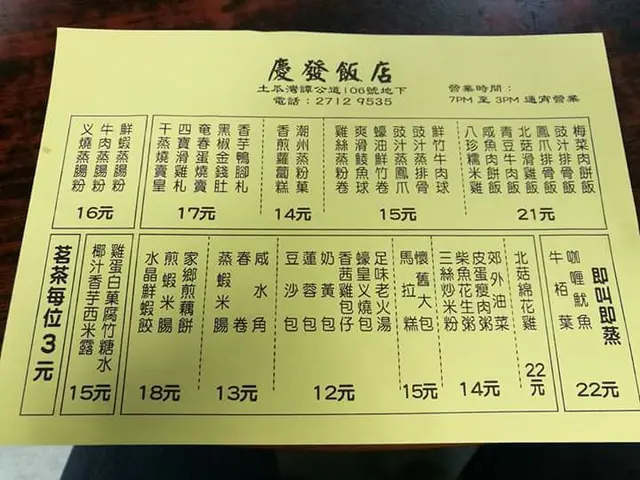 慶發飯店
土瓜灣譚公道106號地下
電話：2712 9535
營業時間：
7PM 至 3PM 通宵營業
梅菜肉餅飯
豉汁排骨飯
鳳爪排骨飯
北菇滑雞飯
青豆牛肉飯
咸魚肉餅飯
八珍糯米雞
21元
鮮竹牛肉球
豉汁蒸排骨
豉汁蒸鳳爪
蠔油鮮竹卷
爽滑鯪魚球
雞絲蒸粉卷
15元
潮州蒸粉菓
香煎蘿蔔糕
14元
香芋鴨腳札
黑椒金錢肚
奄春蛋燒賣
四寶滑雞札
干蒸燒賣皇
17元
鮮蝦蒸腸粉
牛肉蒸腸粉
义燒蒸腸粉
16元
即叫即蒸
咖喱魷魚
牛栢葉
22元
北菇綿花雞
22元
郊外油菜
皮蛋瘦肉粥
柴魚花生粥
三絲炒米粉
14元
懷舊大包
馬拉糕
15元
足味老火湯
蠔皇义燒包
香茜雞包仔
奶黃包
蓮蓉包
豆沙包
12元
咸水角
春卷
蒸蝦米腸
13元
家鄉煎藕餅
煎蝦米腸
水晶鮮蝦餃
18元
雞蛋白菓腐竹糖水
椰汁香芋西米露
15元
茗茶每位3元